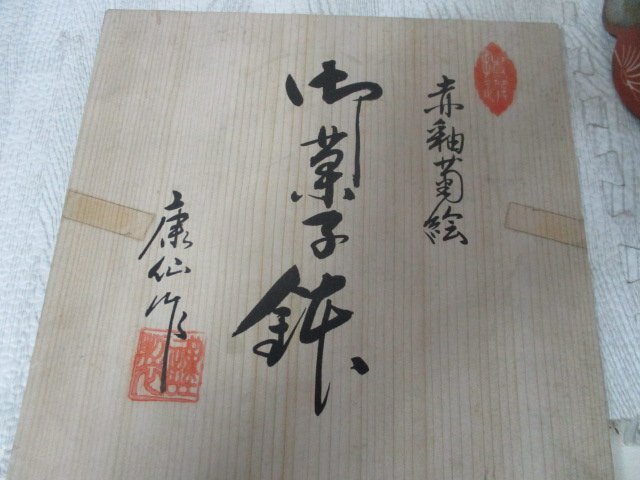 赤釉菊絵
御菓子鉢
康仙作